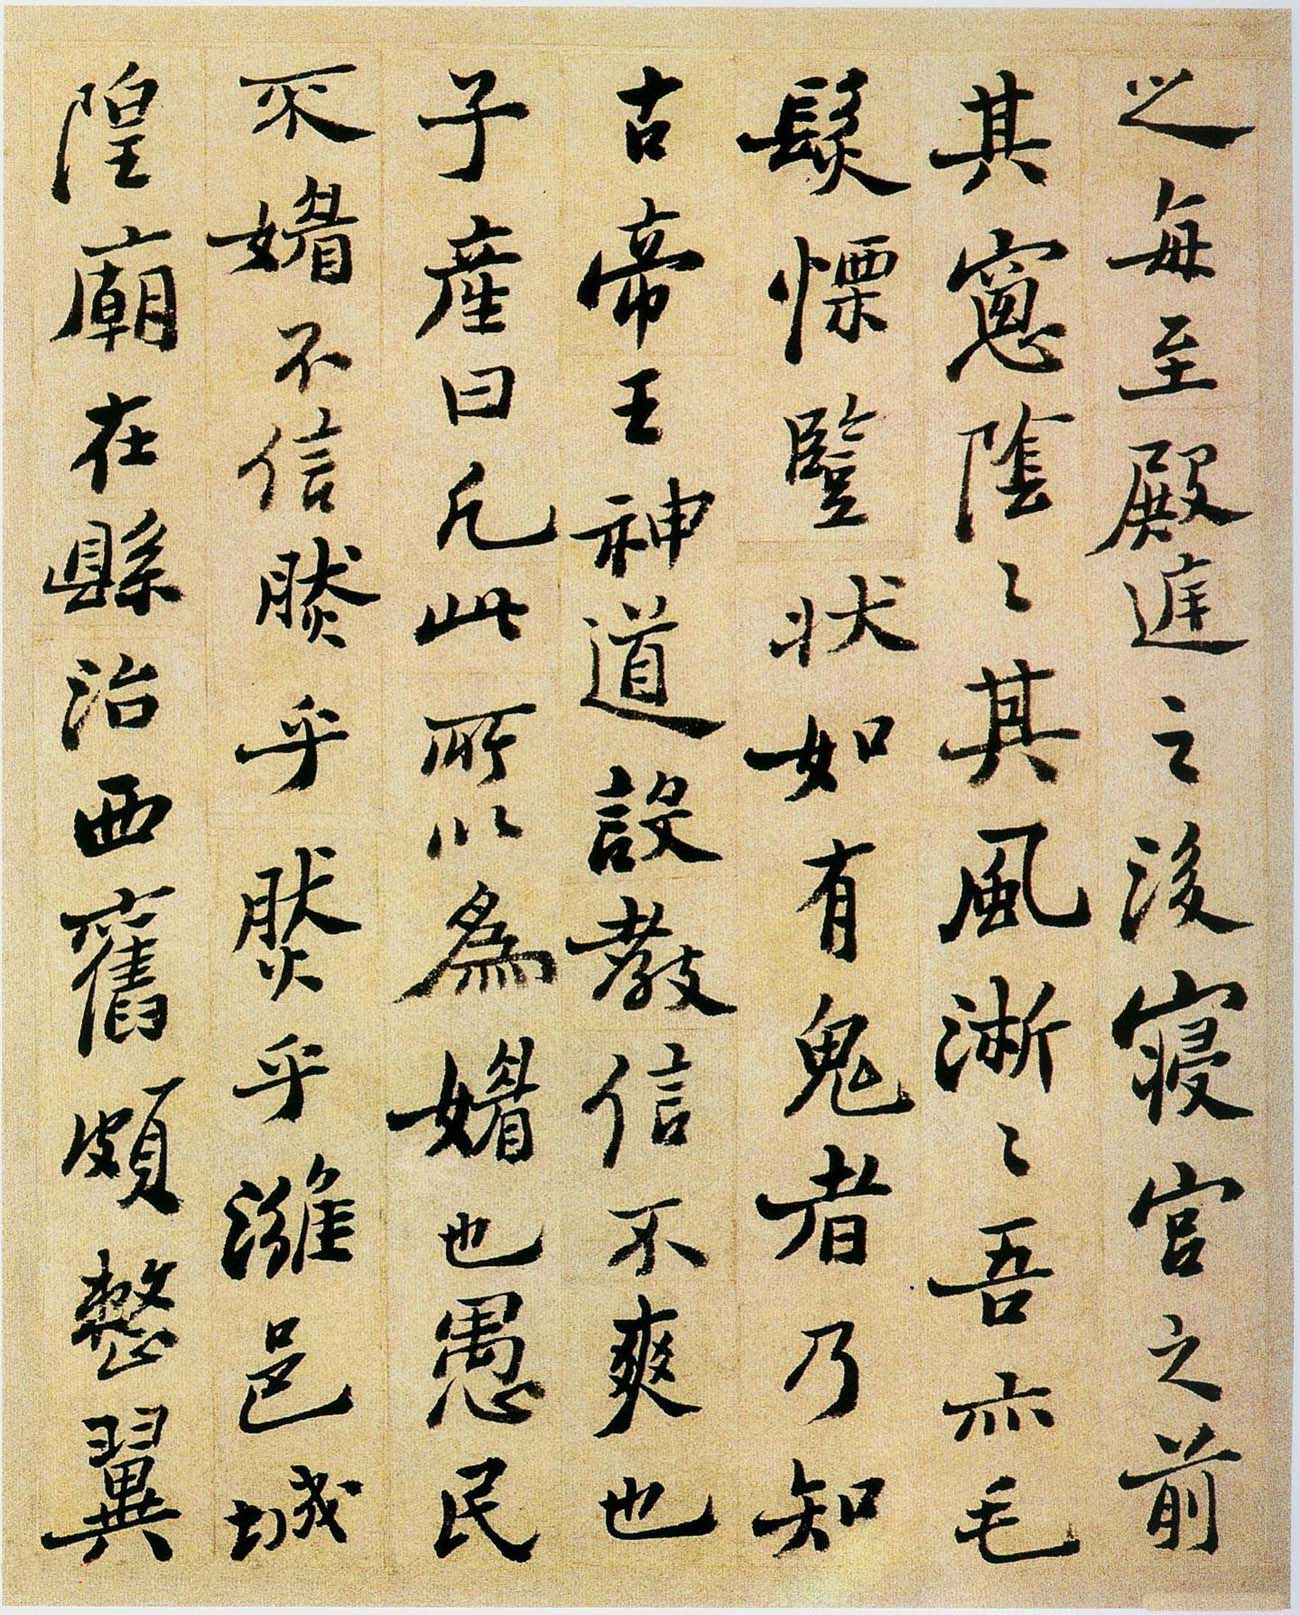 之每至殿庭之後寢宮之前
其窻陰〻其風淅〻吾亦毛
髮慄豎狀如有鬼者乃知
古帝王神道設教信不爽也
子產曰凡此所以為媚也愚民
不媚不信然乎然乎濰邑城
隍廟在縣治西舊頗整翼